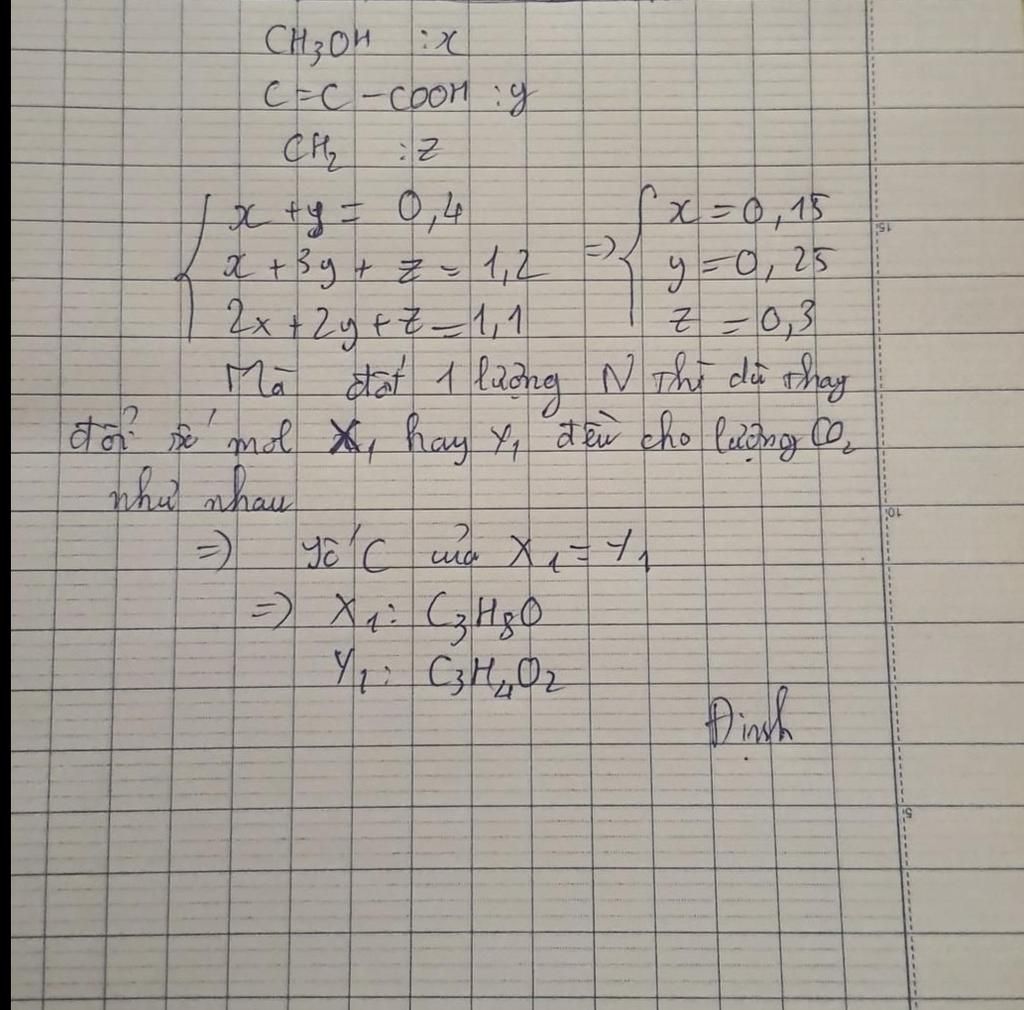 CH₃OH : x
C=C-COOH : y
CH₂ : z
x + y = 0,4 => x = 0,15
x + 3y + z = 1,2 y = 0,25
2x + 2y + z = 1,1 z = 0,3
Mà đốt 1 lượng N thì dù thay
đổi số mol X₁ hay Y₁ đều cho lượng CO₂
như nhau
=> số C của X₁ = Y₁
=> X₁: C₃H₈O
Y₁: C₃H₄O₂
Định
15
10
5